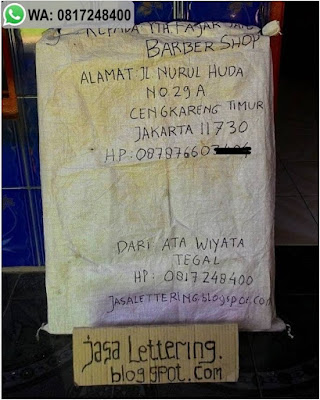 WA: 0817248400
KEPADA YTH FAJAR
BARBER SHOP
ALAMAT JL NURUL HUDA
NO.29 A
CENGKARENG TIMUR
JAKARTA 11730
HP: 087876607
DARI ATA WIYATA
TEGAL
HP: 0817248400
JASALETTERING.blogspot.com
jasa Lettering.
blogspot.com